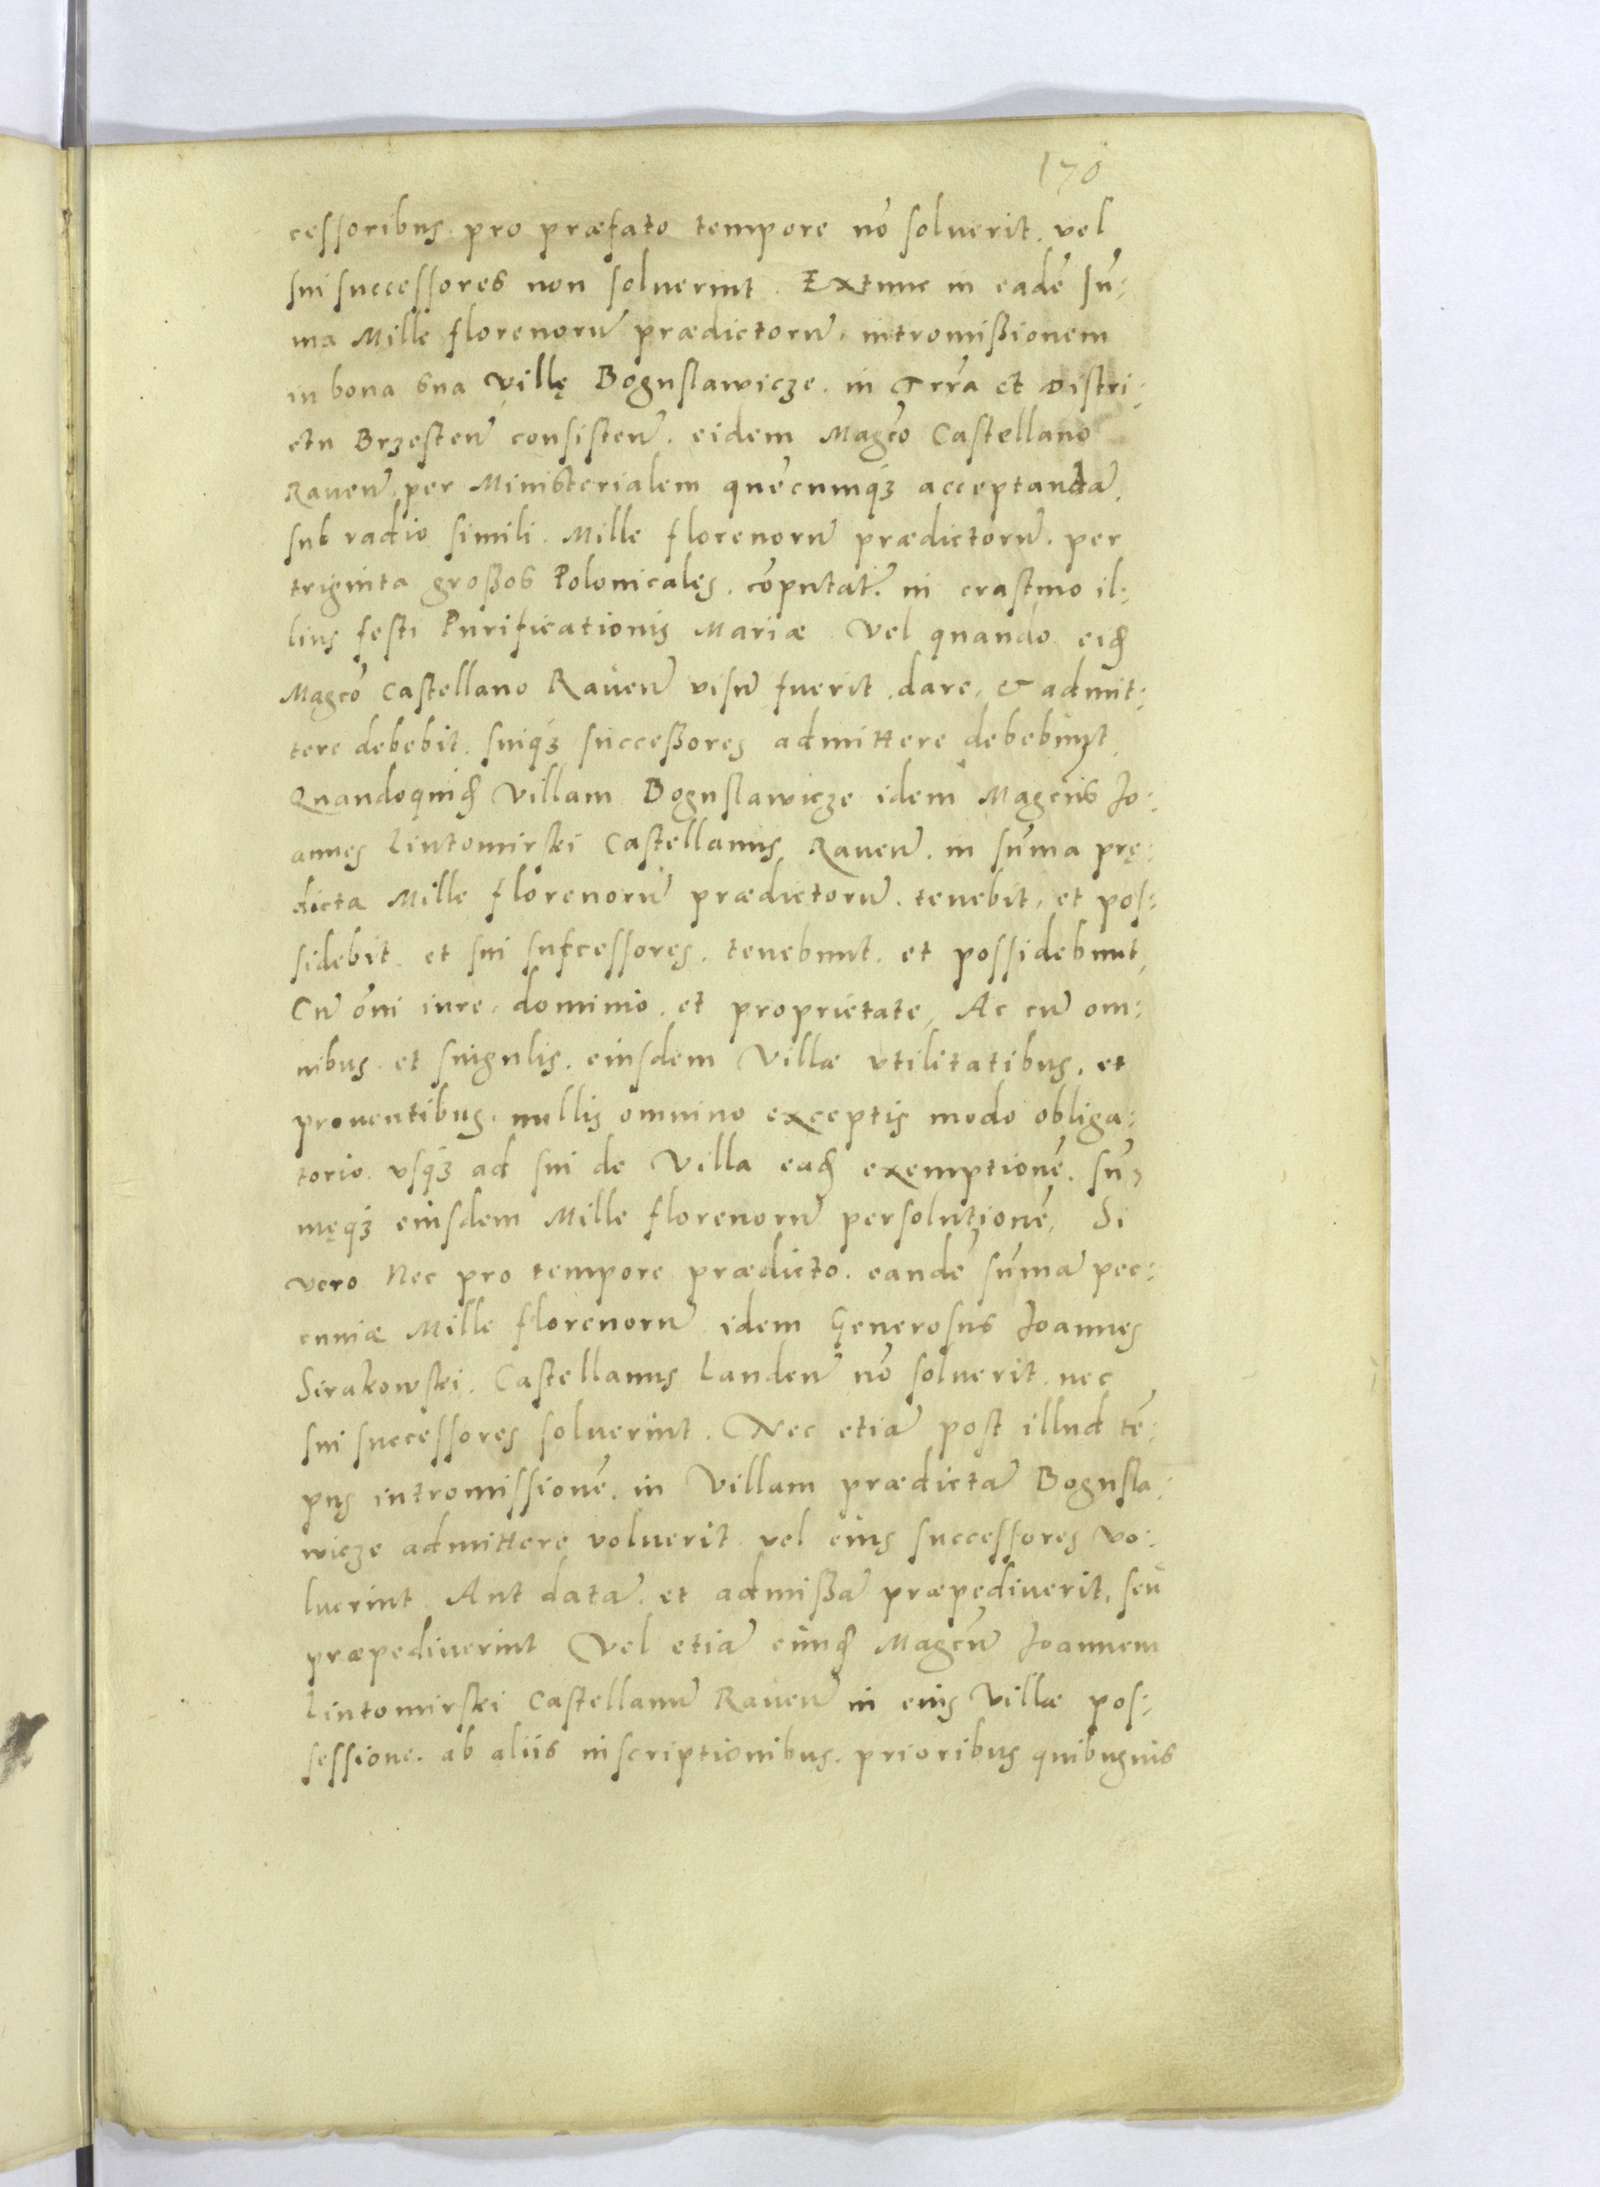 170
cessoribus pro præfato tempore nõ soluerit. vel
sui successores non soluerint. Extunc in eadẽ sũ:
ma Mille florenorũ prædictorũ, intromißionem
in bona sua villę Boguslawicze. in Trrã et Distri:
ctu Brzesteñ consisteñ. eidem Magcõ Castellano
Raveñ per Ministerialem quẽcumqꝫ acceptandã,
sub vadio simili. Mille florenorũ prædictorũ. per
triginta großos Polonicales. cõputat̃. in crastino il:
lius festi Purificationis Mariæ Vel quando eidẽ
Magcõ Castellano Raveñ visũ fuerit. dare, & admit:
tere debebit. suiqꝫ succeßores admittere debebunt,
Quandoquidẽ Villam Boguslawicze idem Magcũs Jo:
annes Lintomirski Castellanus Raveñ. in sũma prę:
dicta Mille florenorũ prædictorũ. tenebit, et pos:
sidebit. et sui sufcessores. tenebunt. et possidebunt,
Cũ õni iure. dominio. et proprietate, Ac cũ om:
nibus et singulis. eiusdem Villæ vtilitatibus. et
prouentibus. nullis omnino exceptis modo obliga:
torio. vsqꝫ ad sui de Villa eadẽ exemptionẽ. sũ:
męqꝫ eiusdem Mille florenorũ persolutionẽ, Si
vero Nec pro tempore prædicto. eandẽ sũmã pec:
cuniæ Mille florenorũ idem Generosus Joannes
Sirakowski. Castellanus Landeñ nõ soluerit. nec
sui successores soluerint. Nec etiã post illud tẽ:
pus intromissionẽ. in Villam prædictã Bogusla:
wicze admittere voluerit vel eius successores vo:
luerint Aut datã. et admißã præpediuerit, seu
præpediuerint Vel etiã eundẽ Magcũ Joannem
Lintomirski Castellanũ Raveñ in eius Villæ pos:
sessione. ab aliis inscriptionibus. prioribus quibusuis